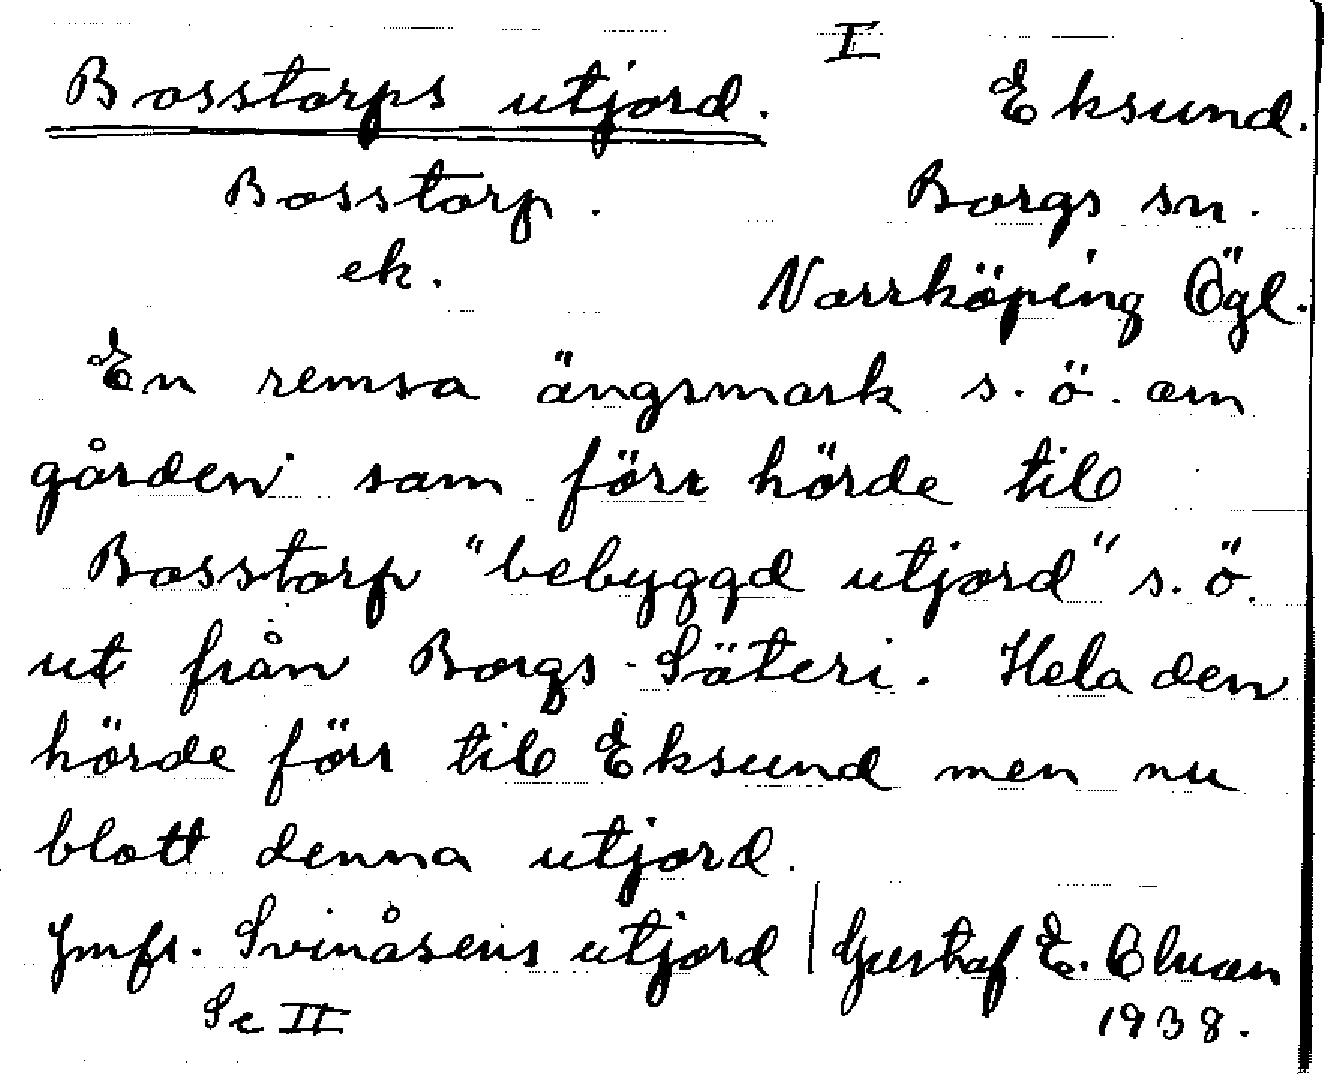 I
Bosstorps utjord. Eksund.
Bosstorp. Borgs sn.
ek. Norrköping Ögl.
En remsa ängsmark s.ö. om
gården som förr hörde till
Bosstorp "bebyggd utjord" s.ö.
ut från Borgs-Säteri. Hela den
hörde förr till Eksund men nu
blott denna utjord.
Jmfr. Svinåsens utjord / Gustaf E.
Se II 1938.